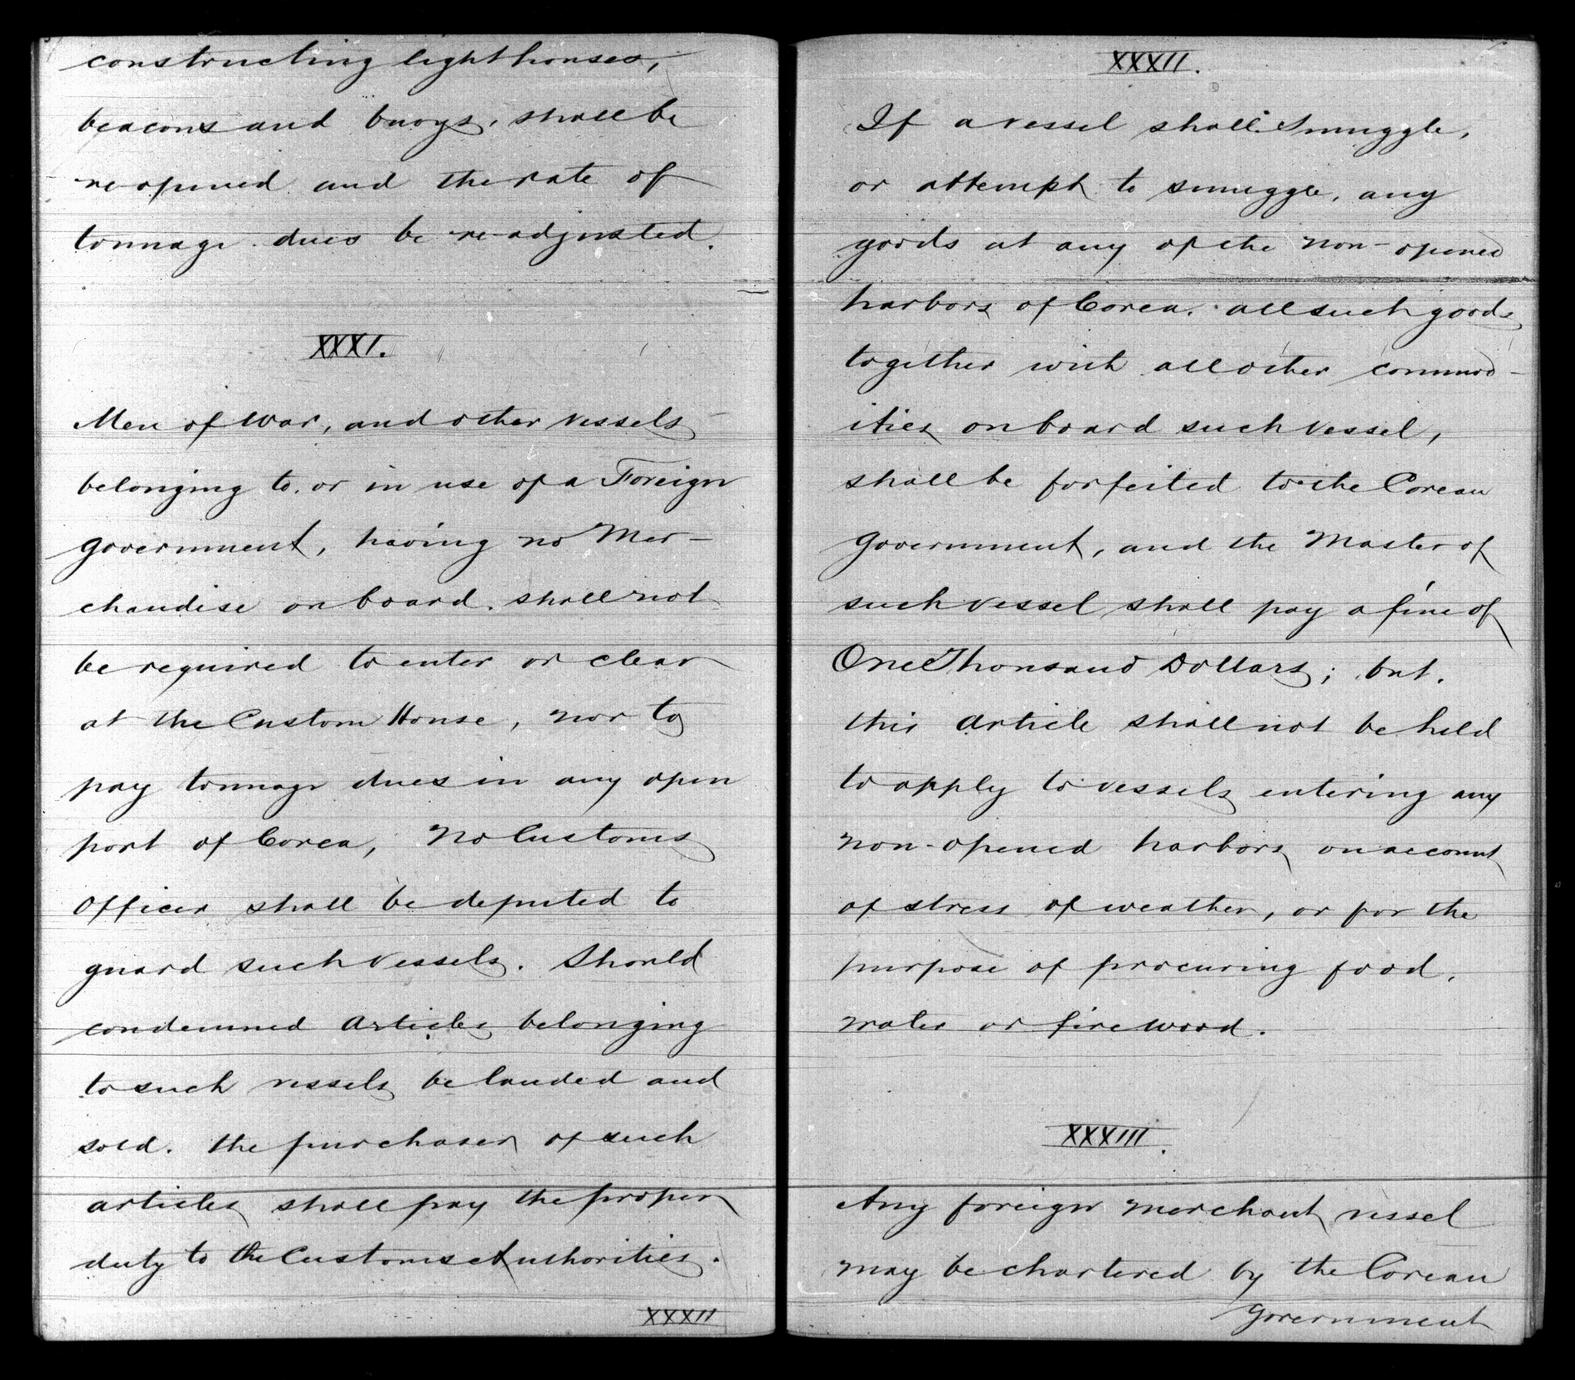 constructing lighthouses,
beacons and buoys, shall be
re-opened and the rate of
tonnage dues be re-adjusted.
XXXI.
Men of War, and other vessels
belonging to, or in use of a Foreign
government, having no Mer-
chandise on board, shall not
be required to enter or clear
at the Custom House, nor to
pay tonnage dues in any open
port of Corea; No Customs
Officer shall be deputed to
guard such vessels. Should
condemned articles belonging
to such vessels be landed and
sold, the purchaser of such
articles shall pay the proper
duty to the Customs Authorities.
XXXII
XXXII.
If a vessel shall smuggle,
or attempt to smuggle, any
goods at any of the non-opened
harbors of Corea, all such goods,
together with all other commod-
ities on board such vessel,
shall be forfeited to the Corean
Government, and the Master of
such vessel shall pay a fine of
One Thousand Dollars; but,
this article shall not be held
to apply to vessels entering any
non-opened harbors on account
of stress of weather, or for the
purpose of procuring food,
water or firewood.
XXXIII.
Any foreign merchant vessel
may be chartered by the Corean
Government